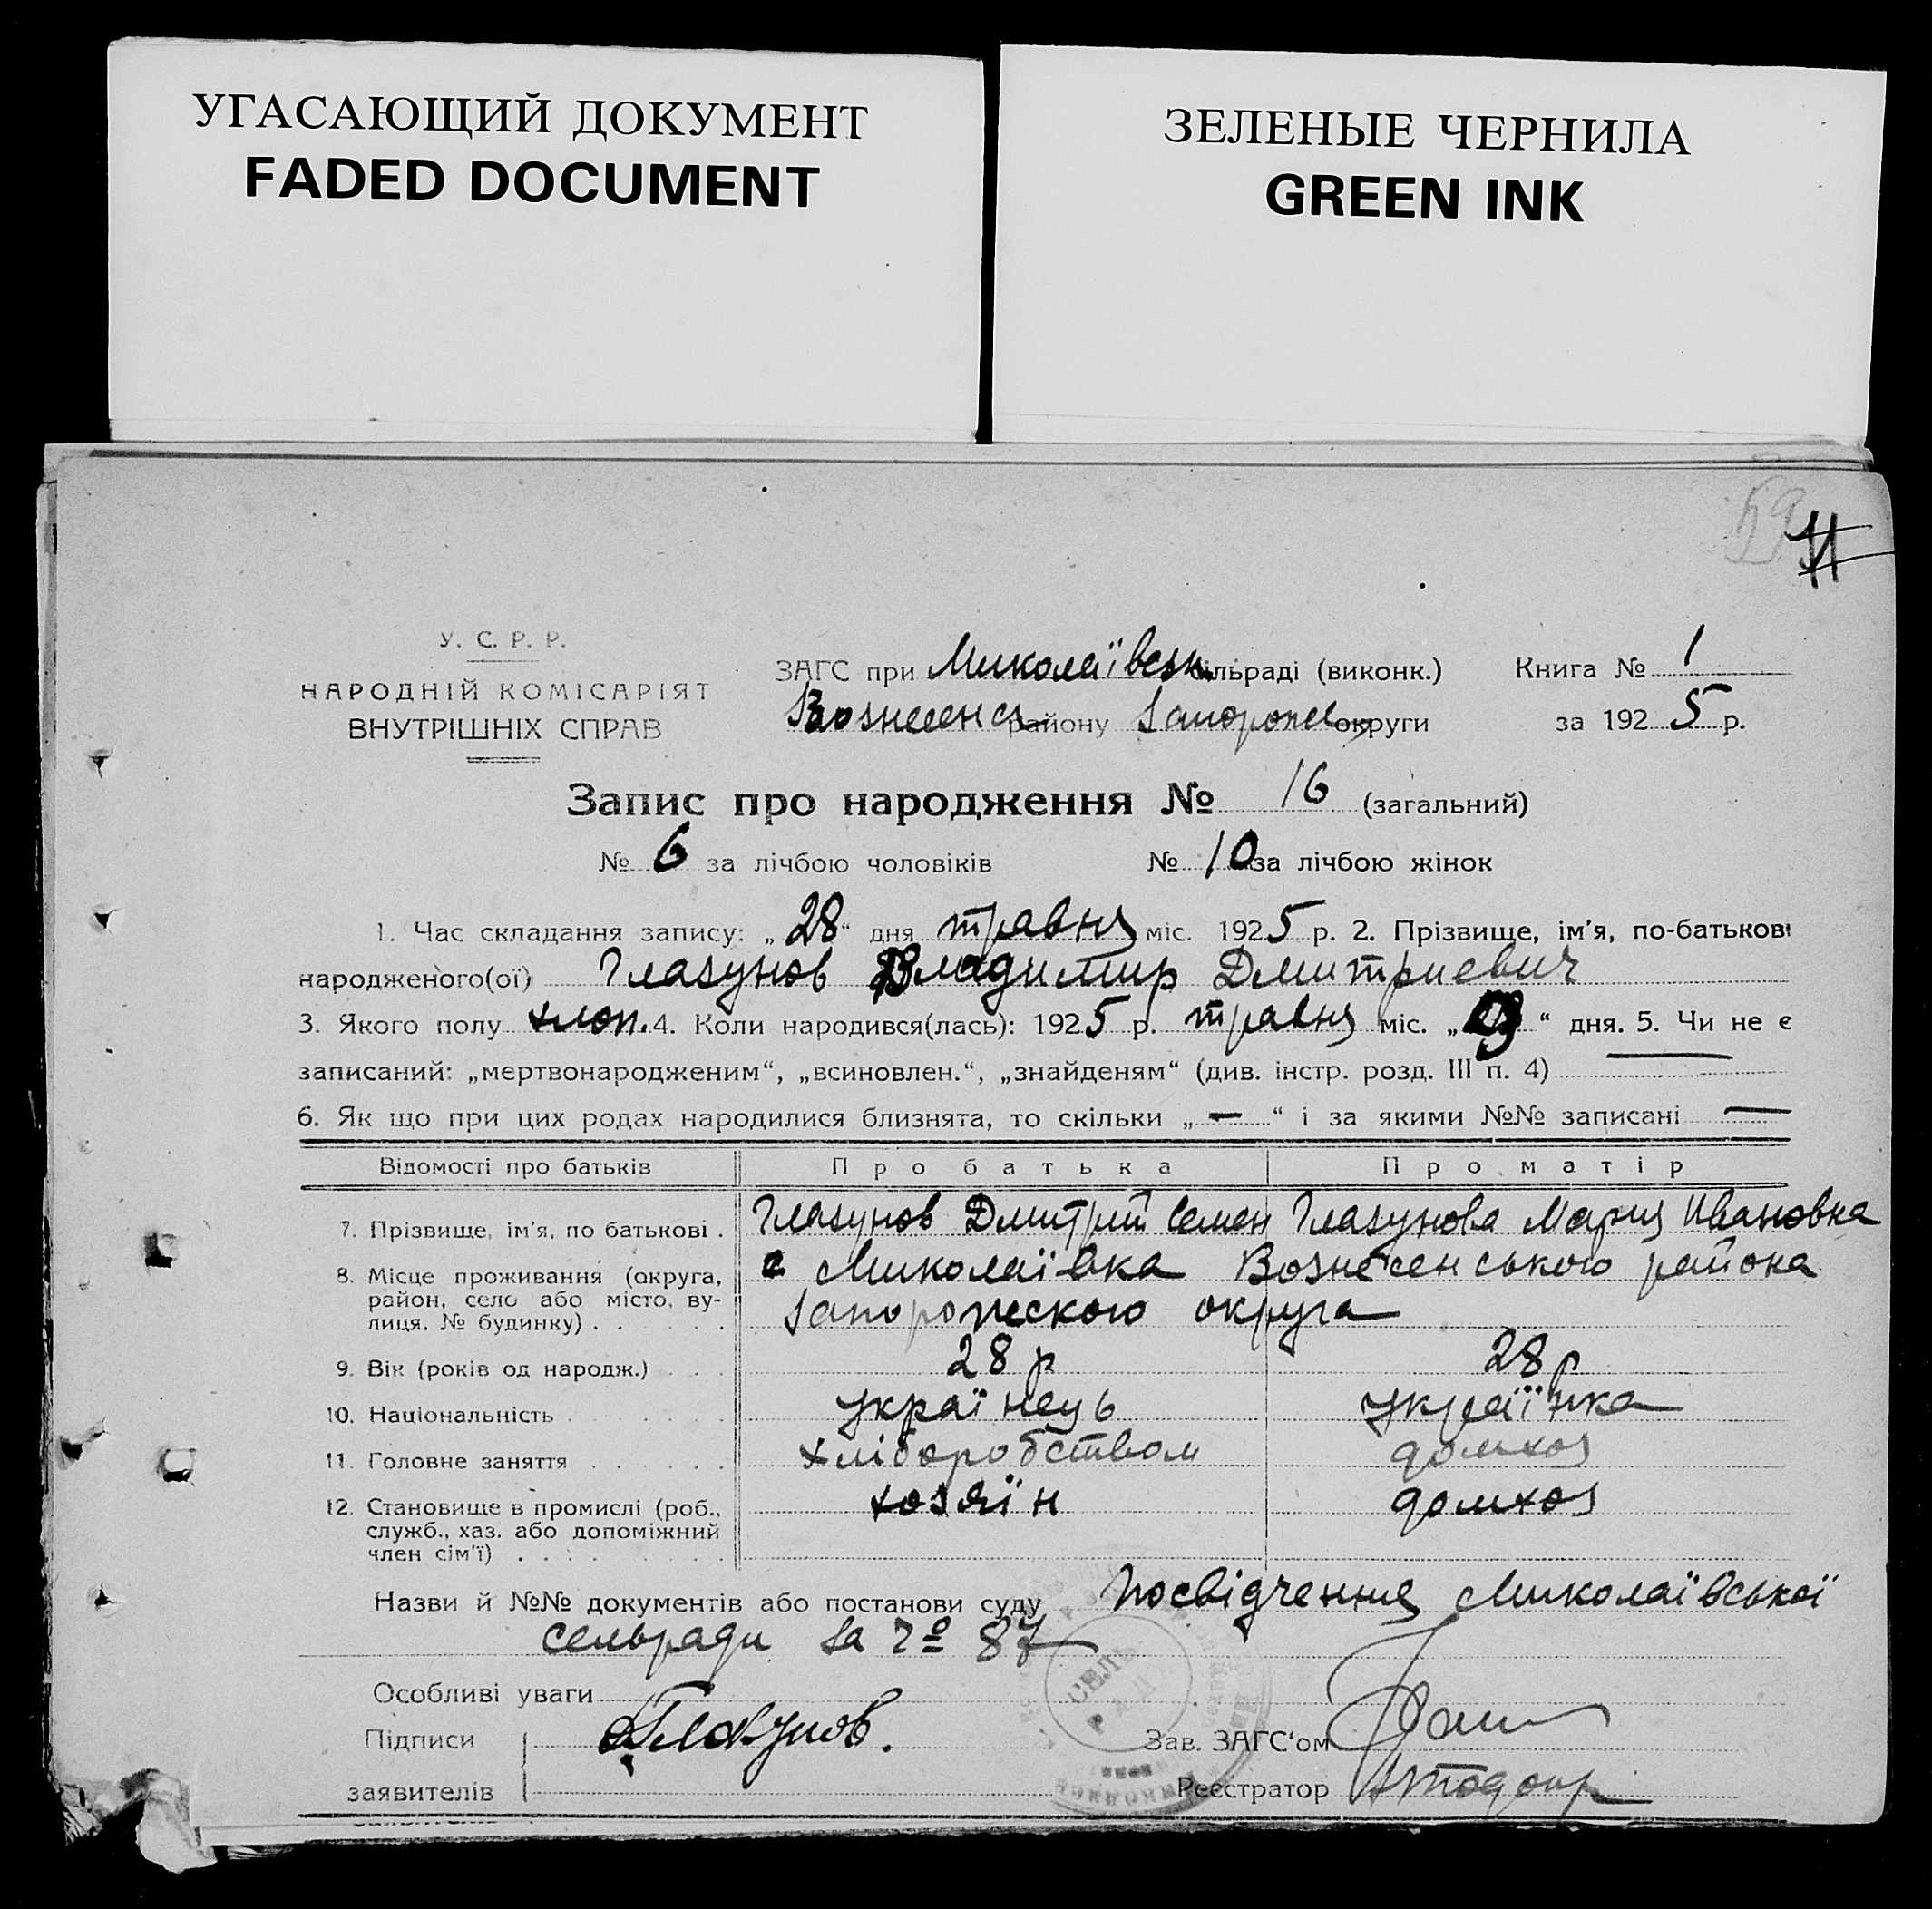 УГАСАЮЩИЙ ДОКУМЕНТ
FADED DOCUMENT
ЗЕЛЕНЫЕ ЧЕРНИЛА
GREEN INK
У. С. Р. Р.
НАРОДНІЙ КОМІСАРІЯТ
ВНУТРІШНІХ СПРАВ
ЗАГС при Миколаївськ сільраді (виконк.) Книга № 1
Вознесенск району Запорожс округи за 1925 р.
Запис про народження № 16 (загальний)
№ 6 за лічбою чоловіків № 10 за лічбою жінок
1. Час складання запису: „28“ дня травня міс. 1925 р. 2. Прізвище, ім'я, по-батькові
народженого(ої) Глазунов Владимир Дмитриевич
3. Якого полу хлоп. 4. Коли народився(лась): 1925 р. травня міс. „ “ дня. 5. Чи не є
записаний: „мертвонародженим“, „всиновлен.“, „знайденям“ (див. інстр. розд. III п. 4) —
6. Як що при цих родах народилися близнята, то скільки „—“ і за якими №№ записані —
Відомості про батьків Про батька Про матір
7. Прізвище, ім'я, по батькові . Глазунов Дмитрий Семен Глазунова Мария Ивановна
8. Місце проживання (округа, район, село або місто, вулиця, № будинку) с Миколаївка Вознесенського района
Запорожского округа
9. Вік (років од народж.) 28 р 28 р
10. Національність українець українка
11. Головне заняття хліборобством домхоз
12. Становище в промислі (роб., служб., хаз. або допоміжний член сім'ї) хозяїн домхоз
Назви й №№ документів або постанови суду Посвідчення Миколаївської
сельради за № 87
СЕЛЬ
РАД
Особливі уваги
Підписи Глазунов. Зав. ЗАГС'ом
заявителів Реєстратор